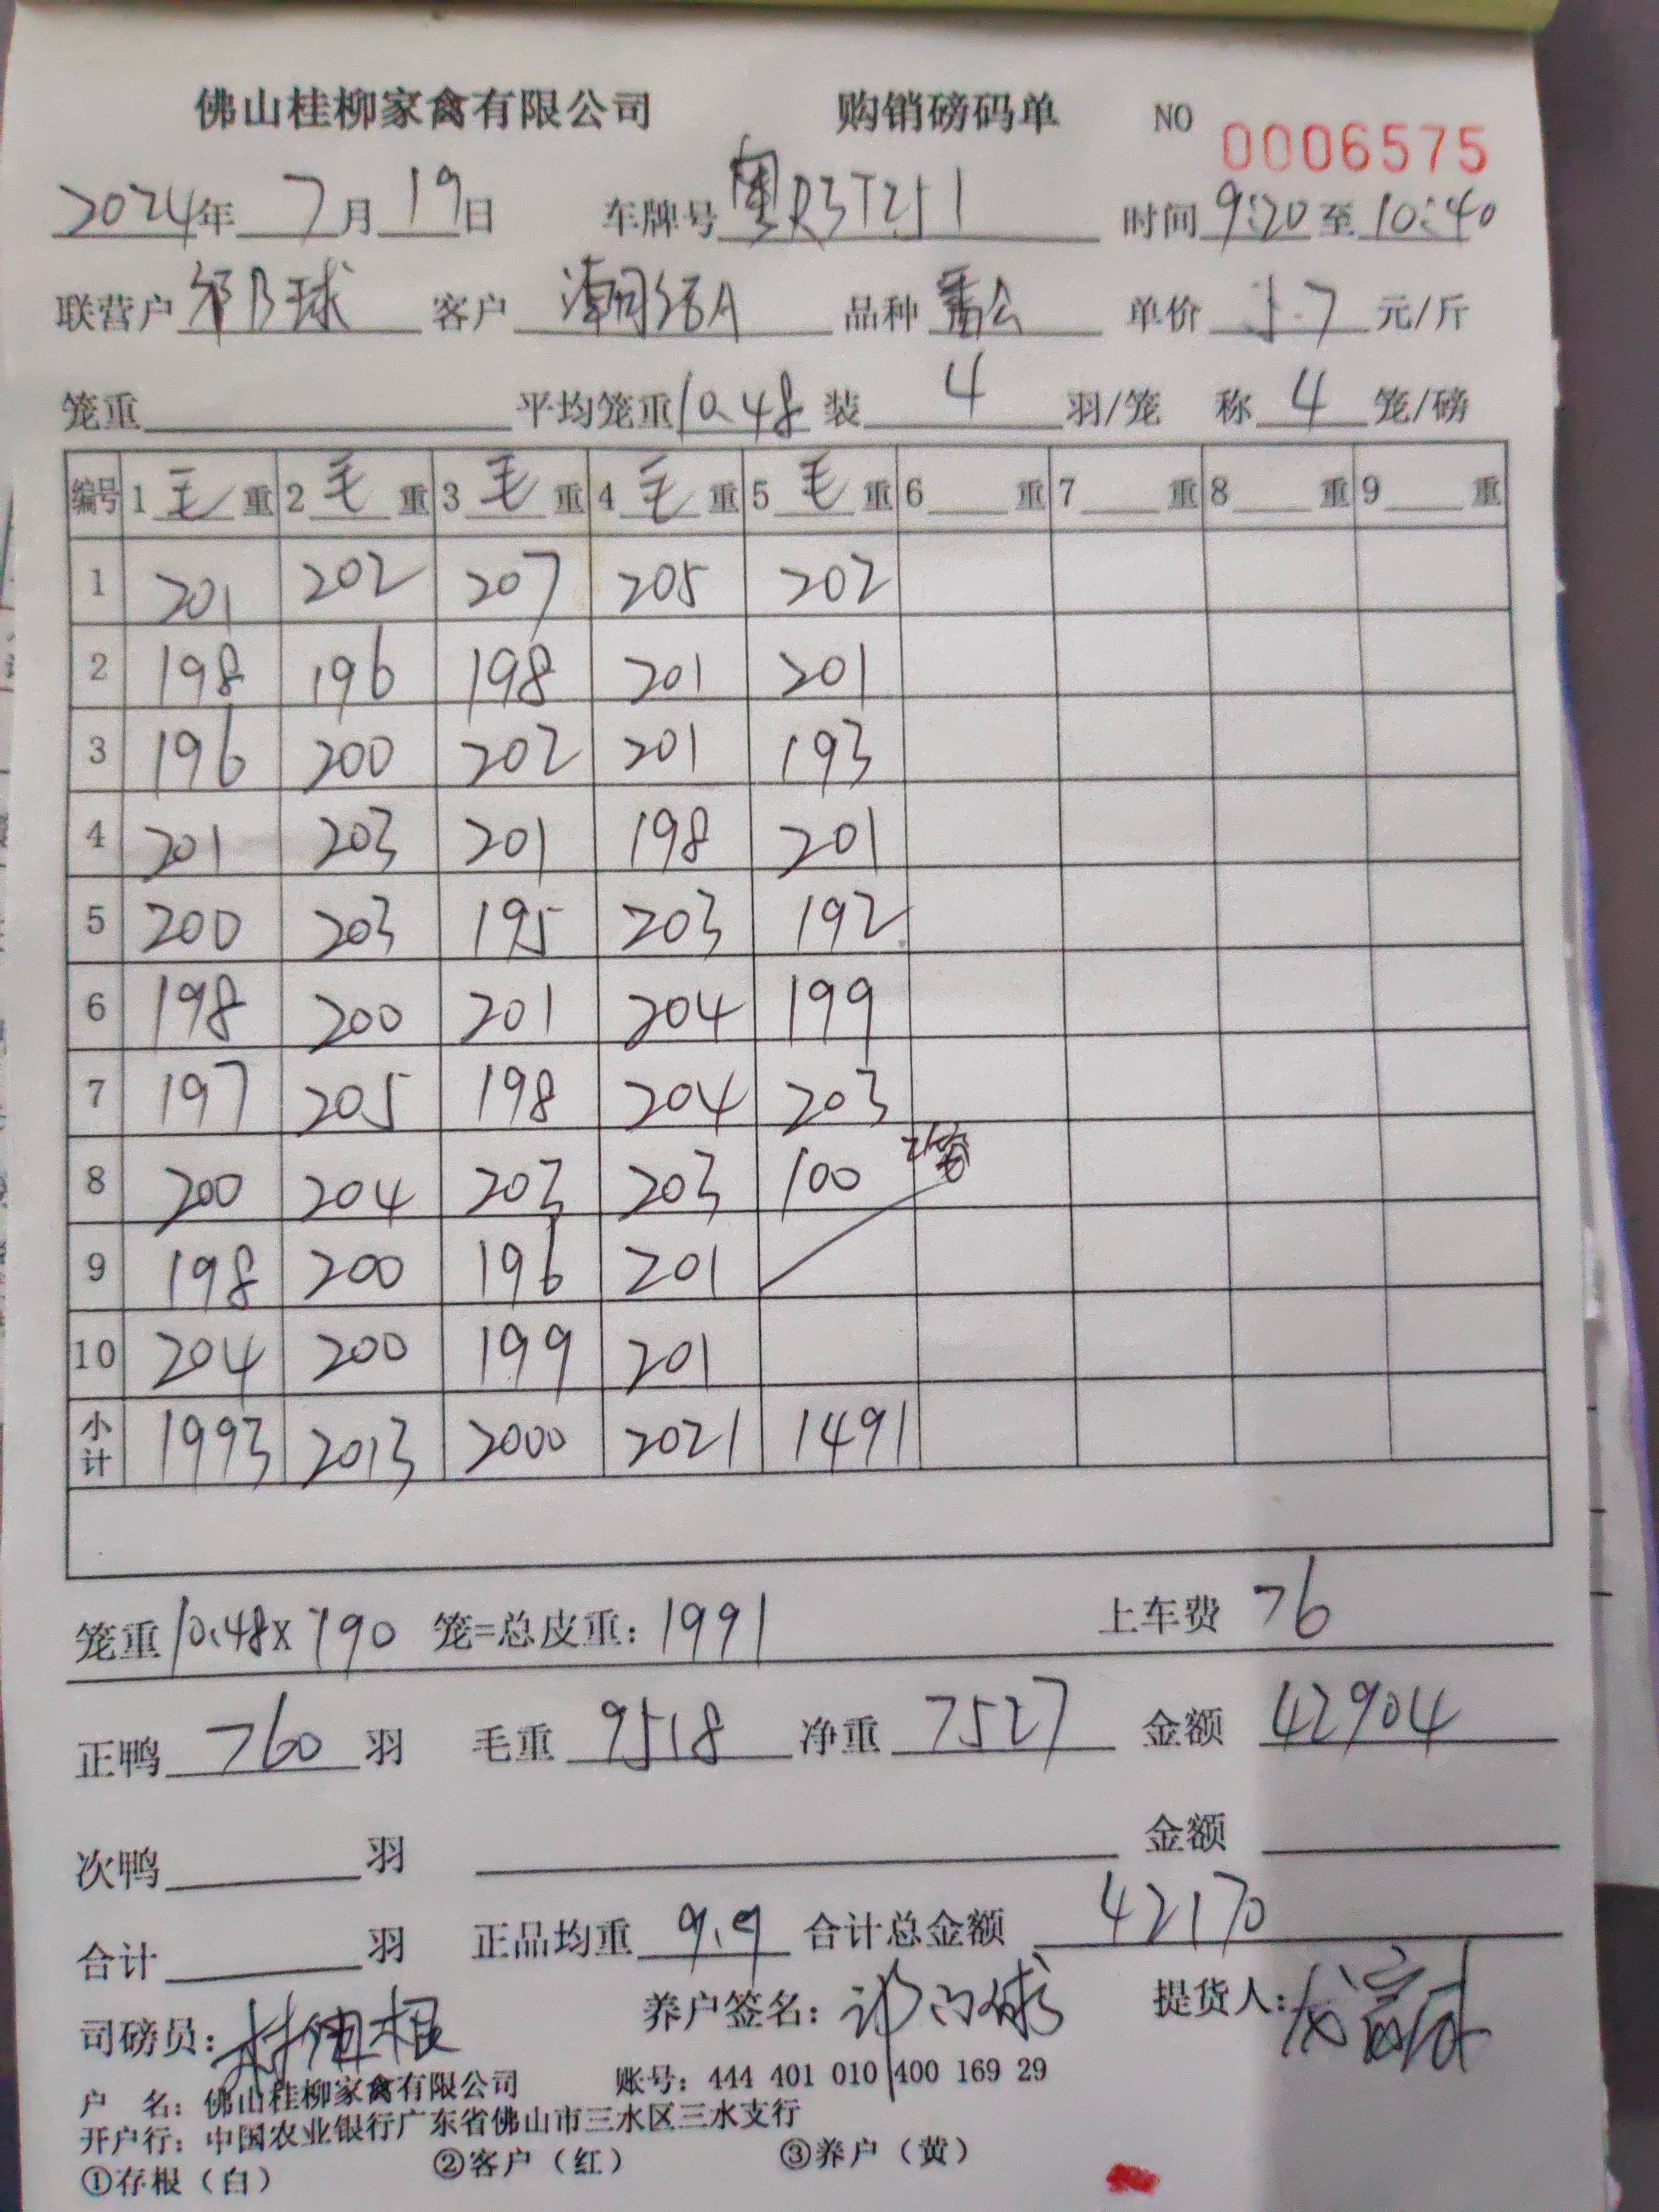 佛山桂柳家禽有限公司 购销磅码单 NO 0006575
2024年 7月 19日 车牌号 粤R3T251 时间 9:20 至 10:40
联营户 球 客户 潮 A 品种 番公 单价 5.7 元/斤
笼重 平均笼重 10.48 装 4 羽/笼 称 4 笼/磅
编号 1 毛 重 2 毛 重 3 毛 重 4 毛 重 5 毛 重 6 重 7 重 8 重 9 重
1 201 202 207 205 202
2 198 196 198 201 201
3 196 200 202 201 193
4 201 203 201 198 201
5 200 203 195 203 192
6 198 200 201 204 199
7 197 205 198 204 203
8 200 204 203 203 100 2笼
9 198 200 196 201
10 204 200 199 201
小计 1993 2013 2000 2021 1491
笼重 10.48 x 190 笼=总皮重: 1991 上车费 76
正鸭 760 羽 毛重 9518 净重 7527 金额 42904
次鸭 羽 金额
合计 羽 正品均重 9.9 合计总金额 42170
司磅员: 养户签名: 提货人:
户 名: 佛山桂柳家禽有限公司 账号: 444 401 010 400 169 29
开户行: 中国农业银行广东省佛山市三水区三水支行
①存根（白） ②客户（红） ③养户（黄）